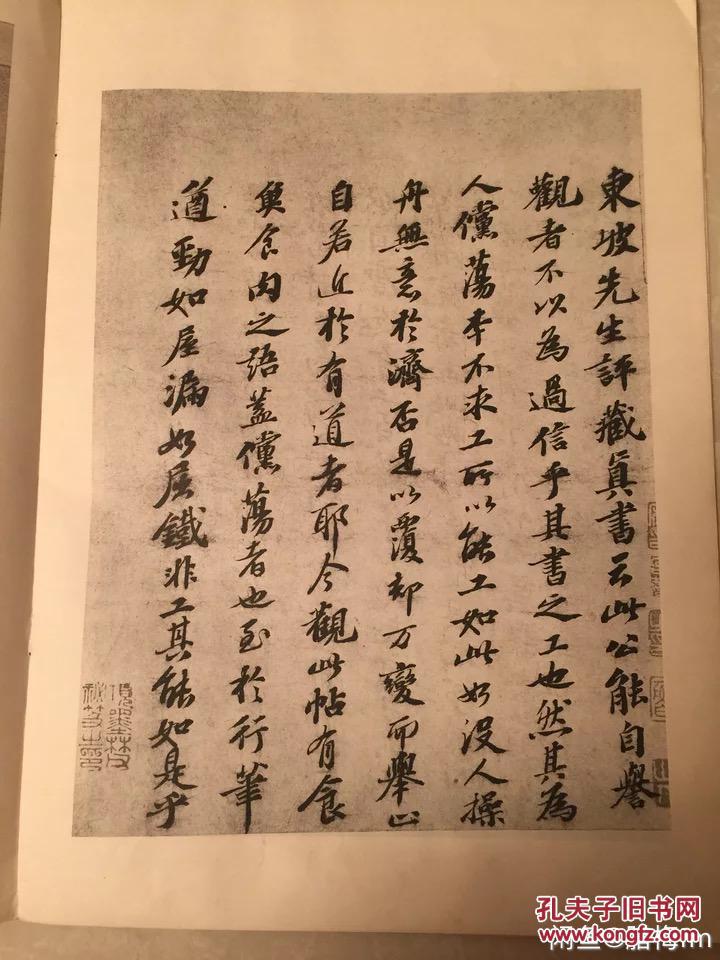 東坡先生評藏真書云此公能自譽
觀者不以為過信乎其書之工也然其為
人儻蕩本不求工所以能工如此如沒人操
舟無意於濟否是以覆却万變而舉止
自若近於有道者耶今觀此帖有食
魚食肉之語蓋儻蕩者也至於行筆
遒勁如屋漏如屈鐵非工其能如是乎
項墨林父
秘笈之印
孔夫子旧书网
www.kongfz.com